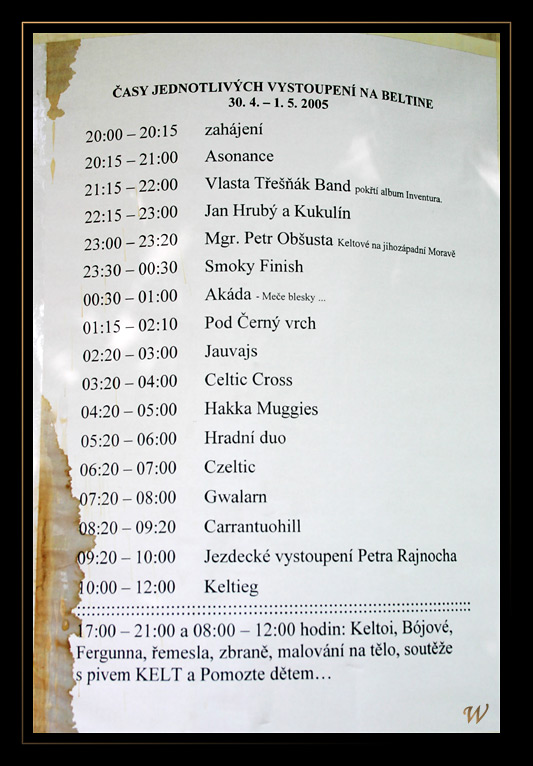 ČASY JEDNOTLIVÝCH VYSTOUPENÍ NA BELTINE
30. 4. – 1. 5. 2005
20:00 – 20:15 zahájení
20:15 – 21:00 Asonance
21:15 – 22:00 Vlasta Třešňák Band pokřtí album Inventura.
22:15 – 23:00 Jan Hrubý a Kukulín
23:00 – 23:20 Mgr. Petr Obšusta Keltové na jihozápadní Moravě
23:30 – 00:30 Smoky Finish
00:30 – 01:00 Akáda - Meče blesky ...
01:15 – 02:10 Pod Černý vrch
02:20 – 03:00 Jauvajs
03:20 – 04:00 Celtic Cross
04:20 – 05:00 Hakka Muggies
05:20 – 06:00 Hradní duo
06:20 – 07:00 Czeltic
07:20 – 08:00 Gwalarn
08:20 – 09:20 Carrantuohill
09:20 – 10:00 Jezdecké vystoupení Petra Rajnocha
10:00 – 12:00 Keltieg
17:00 – 21:00 a 08:00 – 12:00 hodin: Keltoi, Bójové,
Fergunna, řemesla, zbraně, malování na tělo, soutěže
s pivem KELT a Pomozte dětem…
W